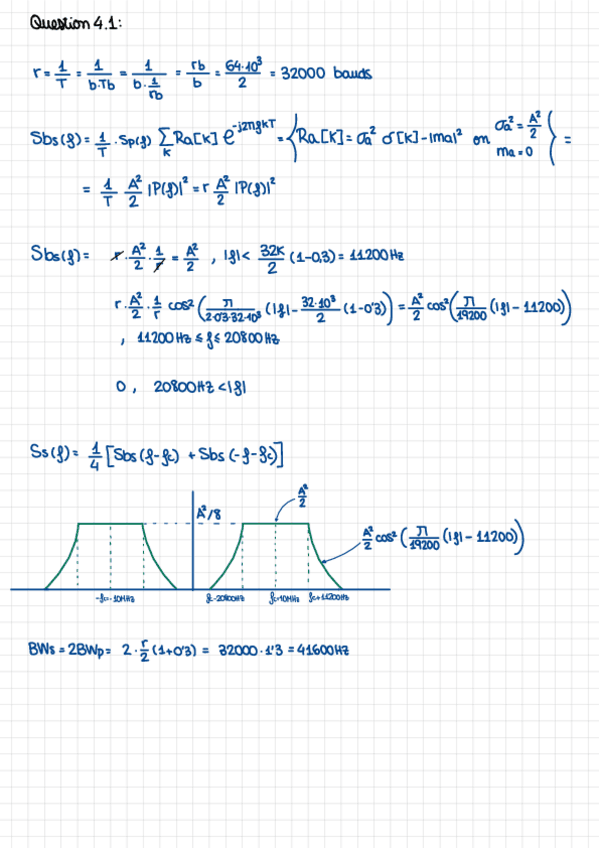 Question 4.1:
r = 1/T = 1/(b·Tb) = 1/(b·1/rb) = rb/b = 64·10³/2 = 32000 bauds
Sbs(f) = 1/T · Sp(f) ∑K Ra[K] e^-j2πfkT = { Ra[K] = σa² σ[K] - |ma|² on σa² = A²/2 ma = 0 } =
= 1/T A²/2 |P(f)|² = r A²/2 |P(f)|²
Sbs(f) = r · A²/2 · 1/r = A²/2 , |f| < 32K/2 (1-0,3) = 11200 Hz
r · A²/2 · 1/r cos² ( π/(2·0'3·32·10³) (|f| - 32·10³/2 (1-0'3) ) = A²/2 cos² ( π/19200 (|f| - 11200) )
, 11200 Hz ≤ f ≤ 20800 Hz
0 , 20800 Hz < |f|
Ss(f) = 1/4 [Sbs(f-fc) + Sbs(-f-fc)]
A²/2
A²/8
A²/2 cos² ( π/19200 (|f| - 11200) )
-fc=-10MHz fc-20800Hz fc=10MHz fc+11200Hz
BWs = 2BWp = 2 · r/2 (1+0'3) = 32000 · 1'3 = 41600 Hz